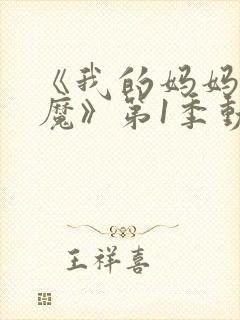 《我的妈妈
魔》第1季動
王祥喜